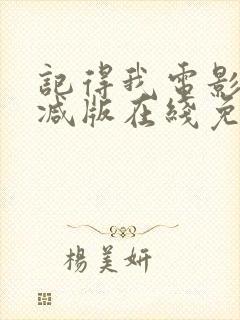 記得我電影
減版在綫免
楊美妍